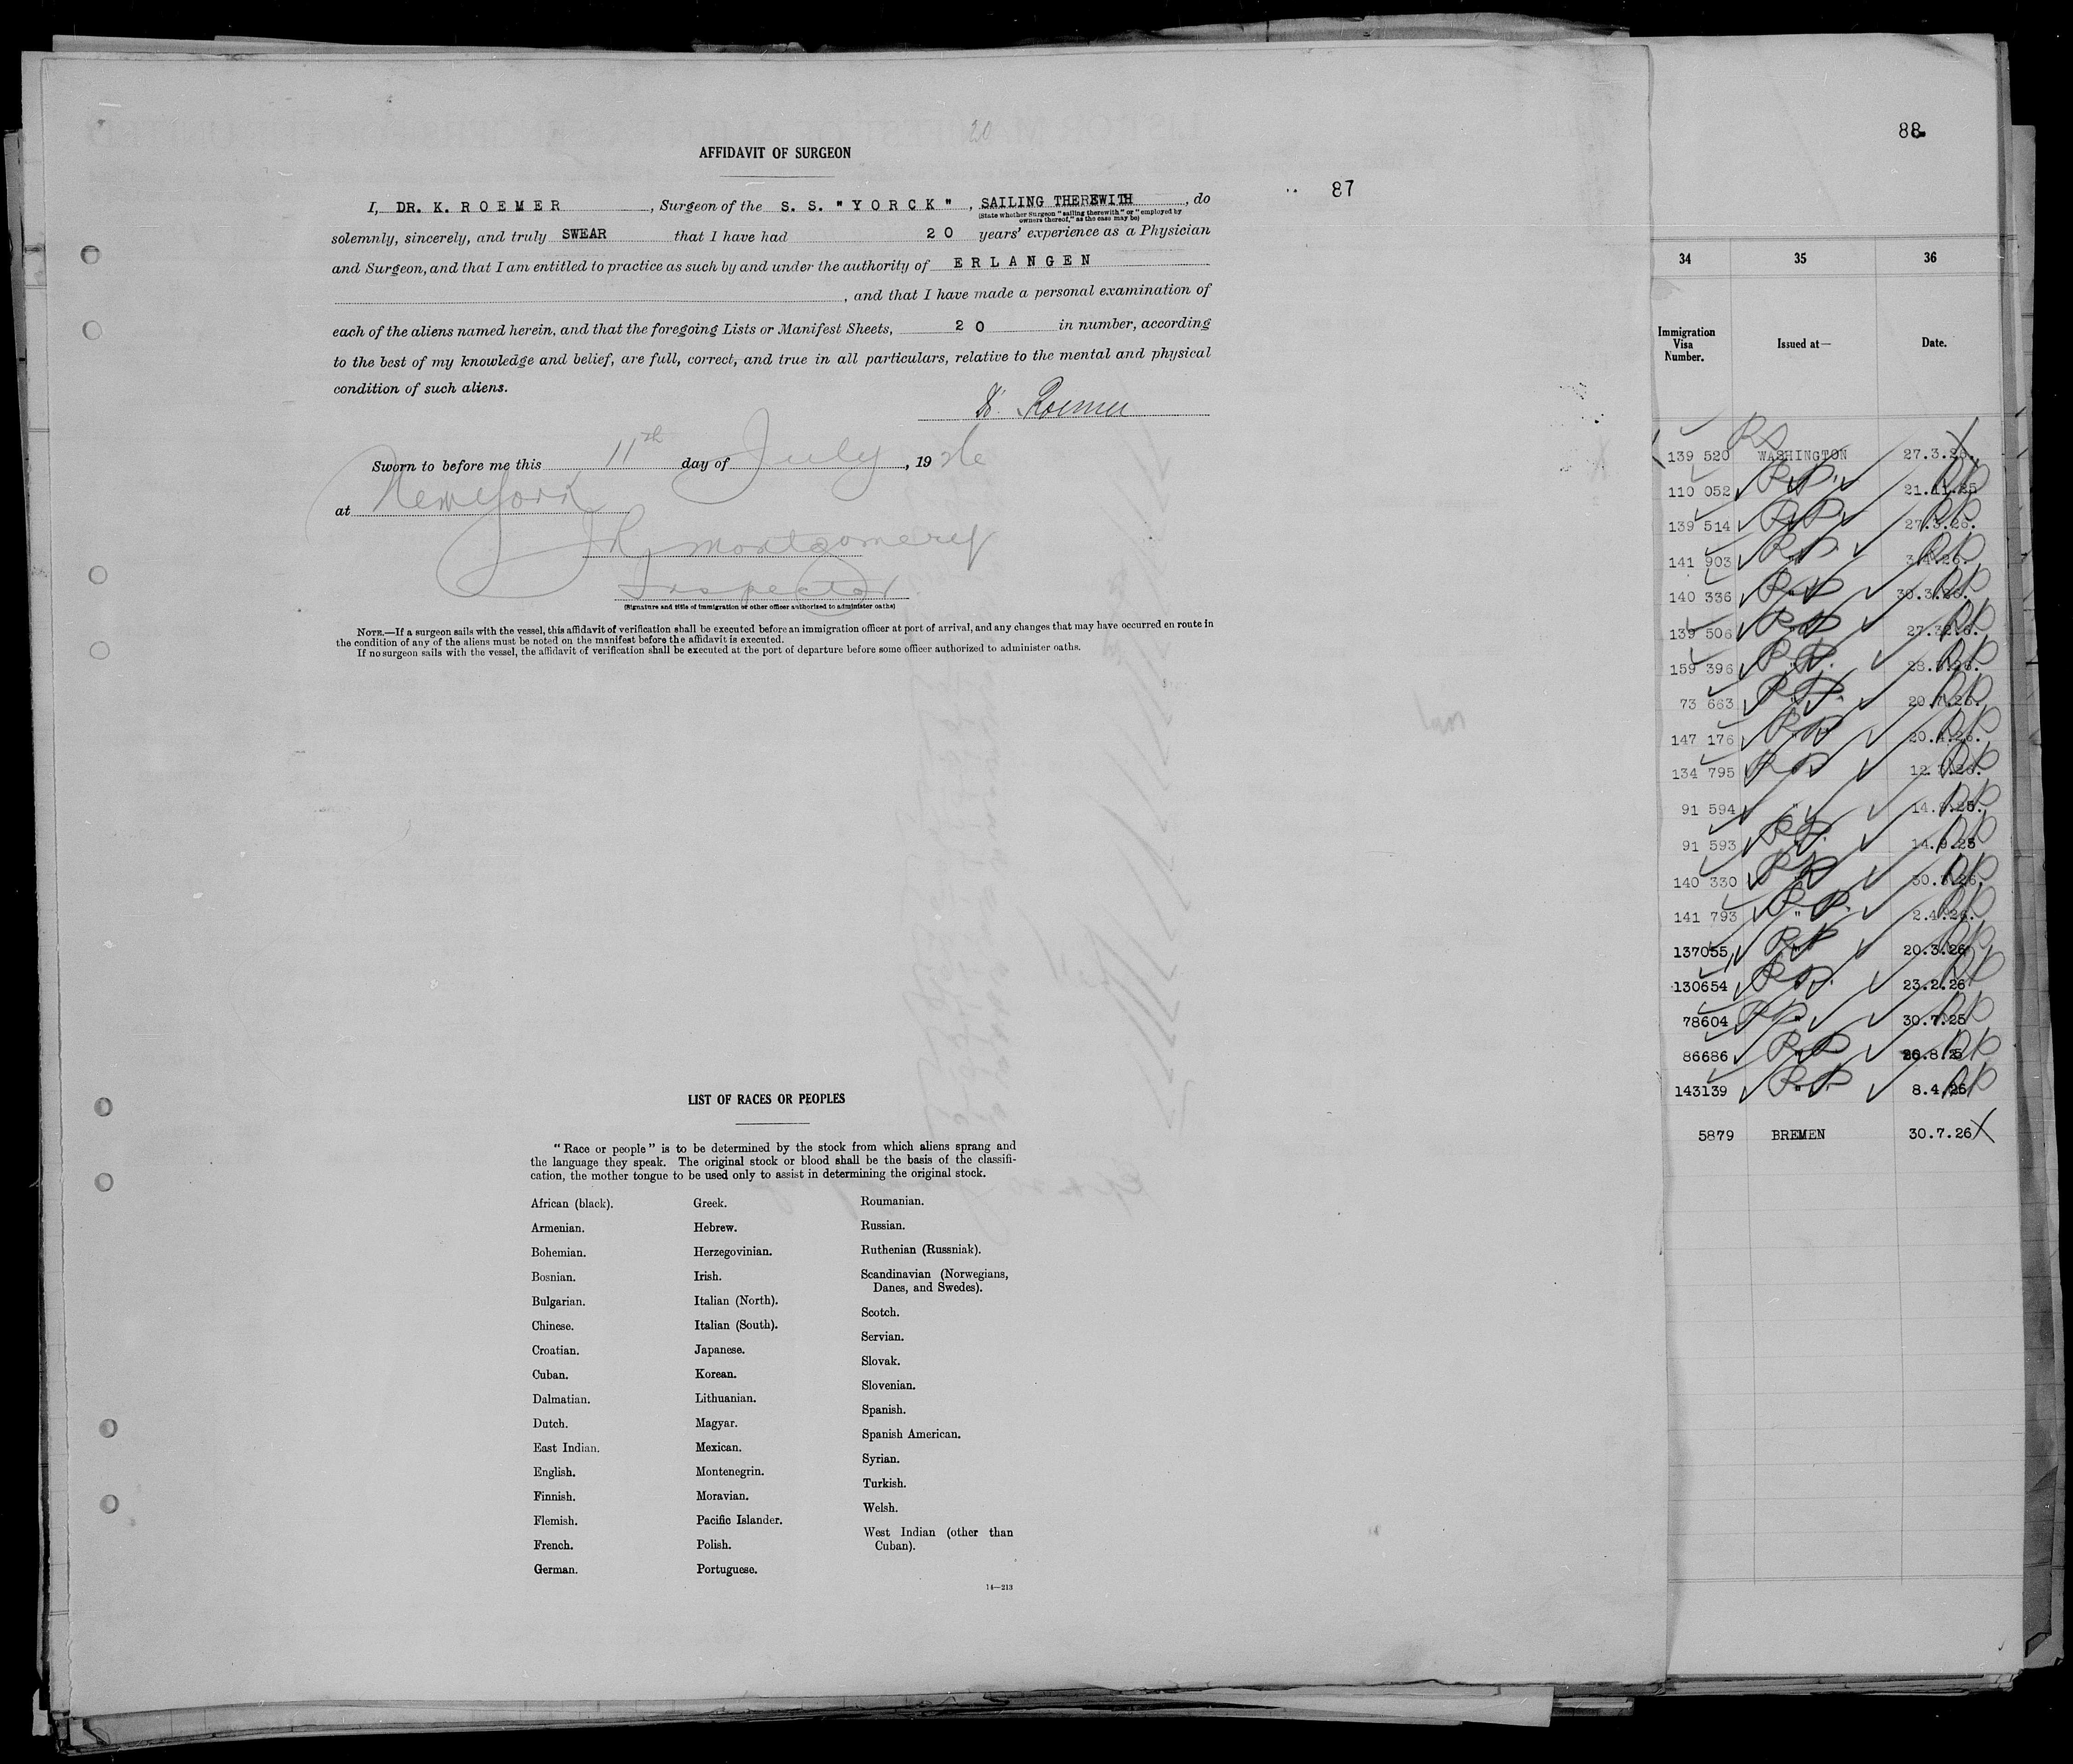 20
AFFIDAVIT OF SURGEON
87
I, DR. K. ROEMER, Surgeon of the S. S. "YORCK", SAILING THEREWITH, do
(State whether Surgeon "sailing therewith" or "employed by
owners thereof," as the case may be)
solemnly, sincerely, and truly SWEAR that I have had 20 years' experience as a Physician
and Surgeon, and that I am entitled to practice as such by and under the authority of ERLANGEN
, and that I have made a personal examination of
each of the aliens named herein, and that the foregoing Lists or Manifest Sheets, 20 in number, according
to the best of my knowledge and belief, are full, correct, and true in all particulars, relative to the mental and physical
condition of such aliens.
Roemer
Sworn to before me this 11th day of July, 1926
at New York
Montgomery
Inspector
(Signature and title of immigration or other officer authorized to administer oaths)
NOTE.—If a surgeon sails with the vessel, this affidavit of verification shall be executed before an immigration officer at port of arrival, and any changes that may have occurred en route in
the condition of any of the aliens must be noted on the manifest before the affidavit is executed.
If no surgeon sails with the vessel, the affidavit of verification shall be executed at the port of departure before some officer authorized to administer oaths.
LIST OF RACES OR PEOPLES
"Race or people" is to be determined by the stock from which aliens sprang and
the language they speak. The original stock or blood shall be the basis of the classifi-
cation, the mother tongue to be used only to assist in determining the original stock.
African (black).
Armenian.
Bohemian.
Bosnian.
Bulgarian.
Chinese.
Croatian.
Cuban.
Dalmatian.
Dutch.
East Indian.
English.
Finnish.
Flemish.
French.
German.
Greek.
Hebrew.
Herzegovinian.
Irish.
Italian (North).
Italian (South).
Japanese.
Korean.
Lithuanian.
Magyar.
Mexican.
Montenegrin.
Moravian.
Pacific Islander.
Polish.
Portuguese.
Roumanian.
Russian.
Ruthenian (Russniak).
Scandinavian (Norwegians,
Danes, and Swedes).
Scotch.
Servian.
Slovak.
Slovenian.
Spanish.
Spanish American.
Syrian.
Turkish.
Welsh.
West Indian (other than
Cuban).
14—213
88
34 35 36
Immigration
Visa
Number.
Issued at—
Date.
139 520 WASHINGTON 27.3.
110 052 "
139 514 27.3.26.
141 903
140 336 30.3.26.
139 506
159 396
73 663
147 176 20.4.26.
134 795
91 594 " 14.9.25.
91 593 14.9.25
140 330 30.3.26.
141 793 " 2.4.26.
137055 20.3.26
130654 23.2.26
78604 " 30.7.25
86686
143139 " 8.4.26
5879 BREMEN 30.7.26